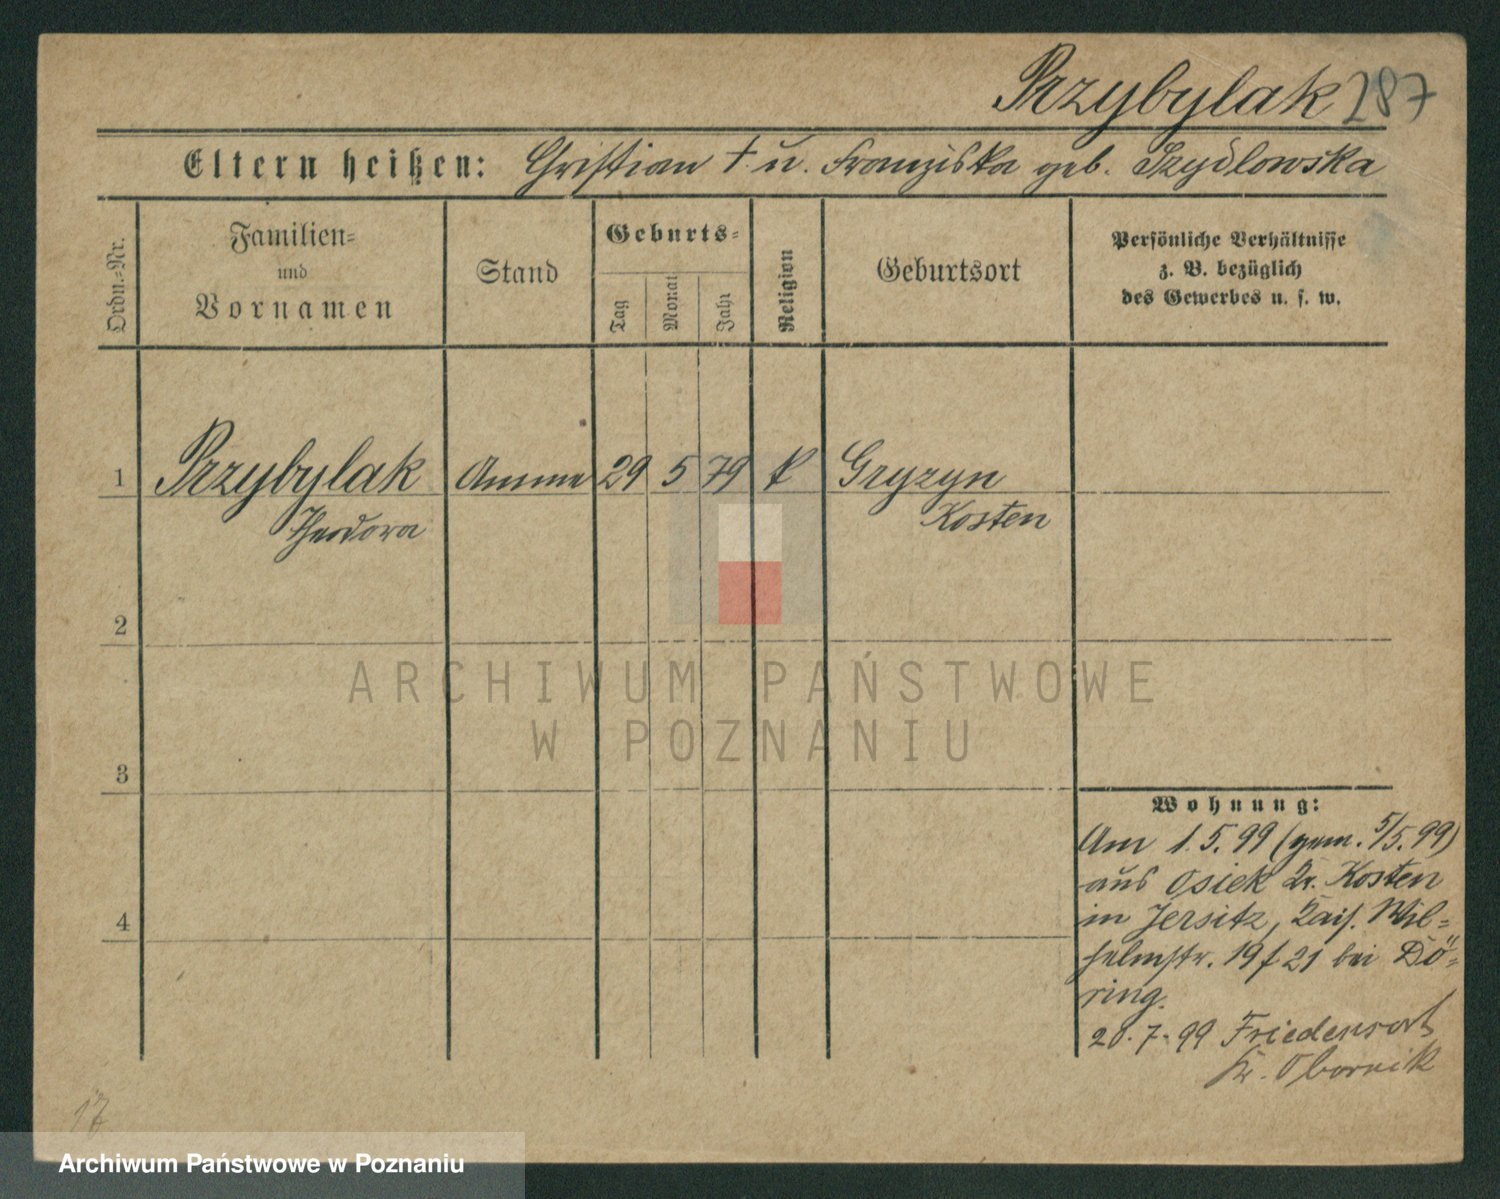 Przybylak 287
Eltern heißen: Christian † u. Franziska geb. Szydlowska
Ordn.-Nr.
Familien-
und
Vornamen
Stand
Geburts-
Tag
Monat
Jahr
Religion
Geburtsort
Persönliche Verhältnisse
z. B. bezüglich
des Gewerbes u. s. w.
1 Przybylak Amme 29 5 79 k Gryzyn
Theodora Kosten
2
3
4
Wohnung:
Am 1.5.99 (gem. 5/5.99)
aus Osiek Kr. Kosten
in Jersitz, Kais. Wil-
helmstr. 19 f 21 bei Dö-
ring.
20.7.99 Friedensort
Kr. Obornik
17
ARCHIWUM PAŃSTWOWE
W POZNANIU
Archiwum Państwowe w Poznaniu